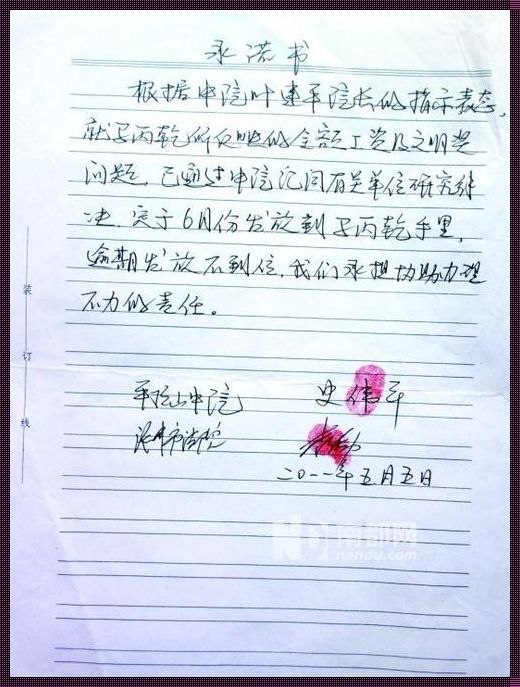 承诺书
根据中院叶建平院长的指示表态,
就予丙乾所反映的全额工资及文明奖
问题,已通过中院汇同有关单位研究解
决,定于6月份发放到予丙乾手里,
逾期发放不到位,我们承担协助办理
不力的责任。
平顶山中院 史伟平
市法院
二〇一一年五月五日
装
订
线
南都网
nandu.com